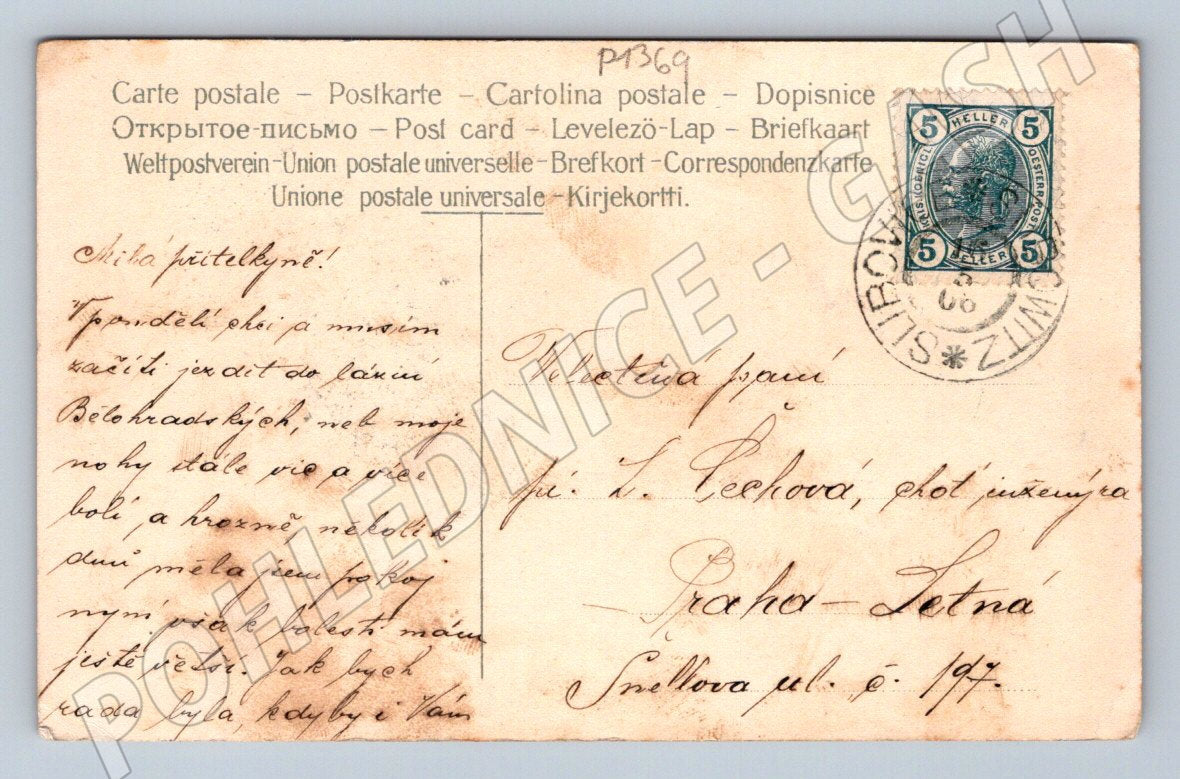 P1369
Carte postale – Postkarte – Cartolina postale – Dopisnice
Открытое-письмо – Post card – Levelezö-Lap – Briefkaart
Weltpostverein-Union postale universelle-Brefkort-Correspondenzkarte
Unione postale universale-Kirjekortti.
5 HELLER 5
KAIS. KOENIGL. OESTERR. POST
5 HELLER 5
SLIBOVI
OWITZ
5
06
Milá přítelkyně!
V pondělí chci a musím
začíti jezdit do lázní
Bělohradských, neb moje
nohy stále víc a více
bolí a hrozně, několik
dnů měla jsem pokoj
nyní však bolesti mám
ještě větší. Jak bych
ráda byla, kdyby i Vám
Velectěná paní
pí. L. Čechová, choť inženýra
Praha – Letná
Snellova ul. č. 197.
POHLEDNICE - G SH